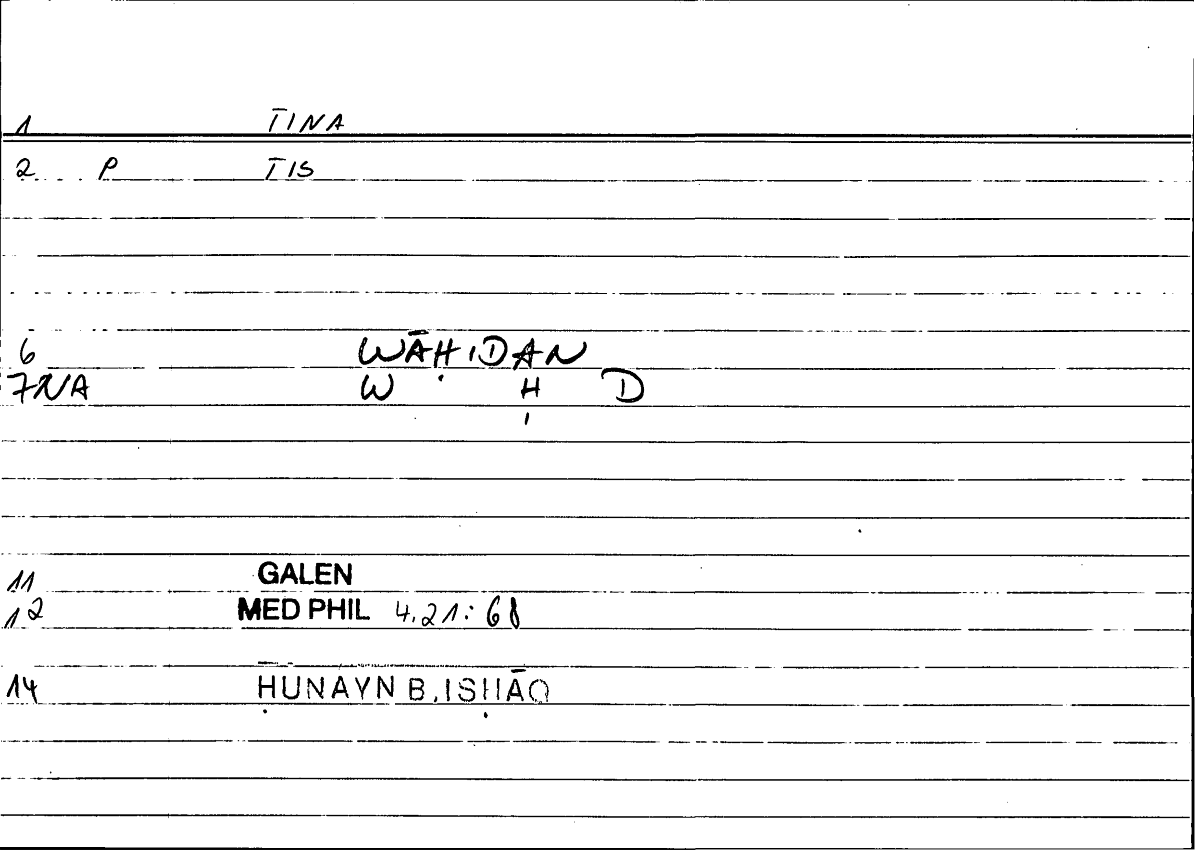 1 T̄INA
2 P T̄IS
6 WĀḤIDAN
7NA W Ḥ D
11 GALEN
12 MED PHIL 4.21: 68
14 ḤUNAYN B. ISḤĀQ